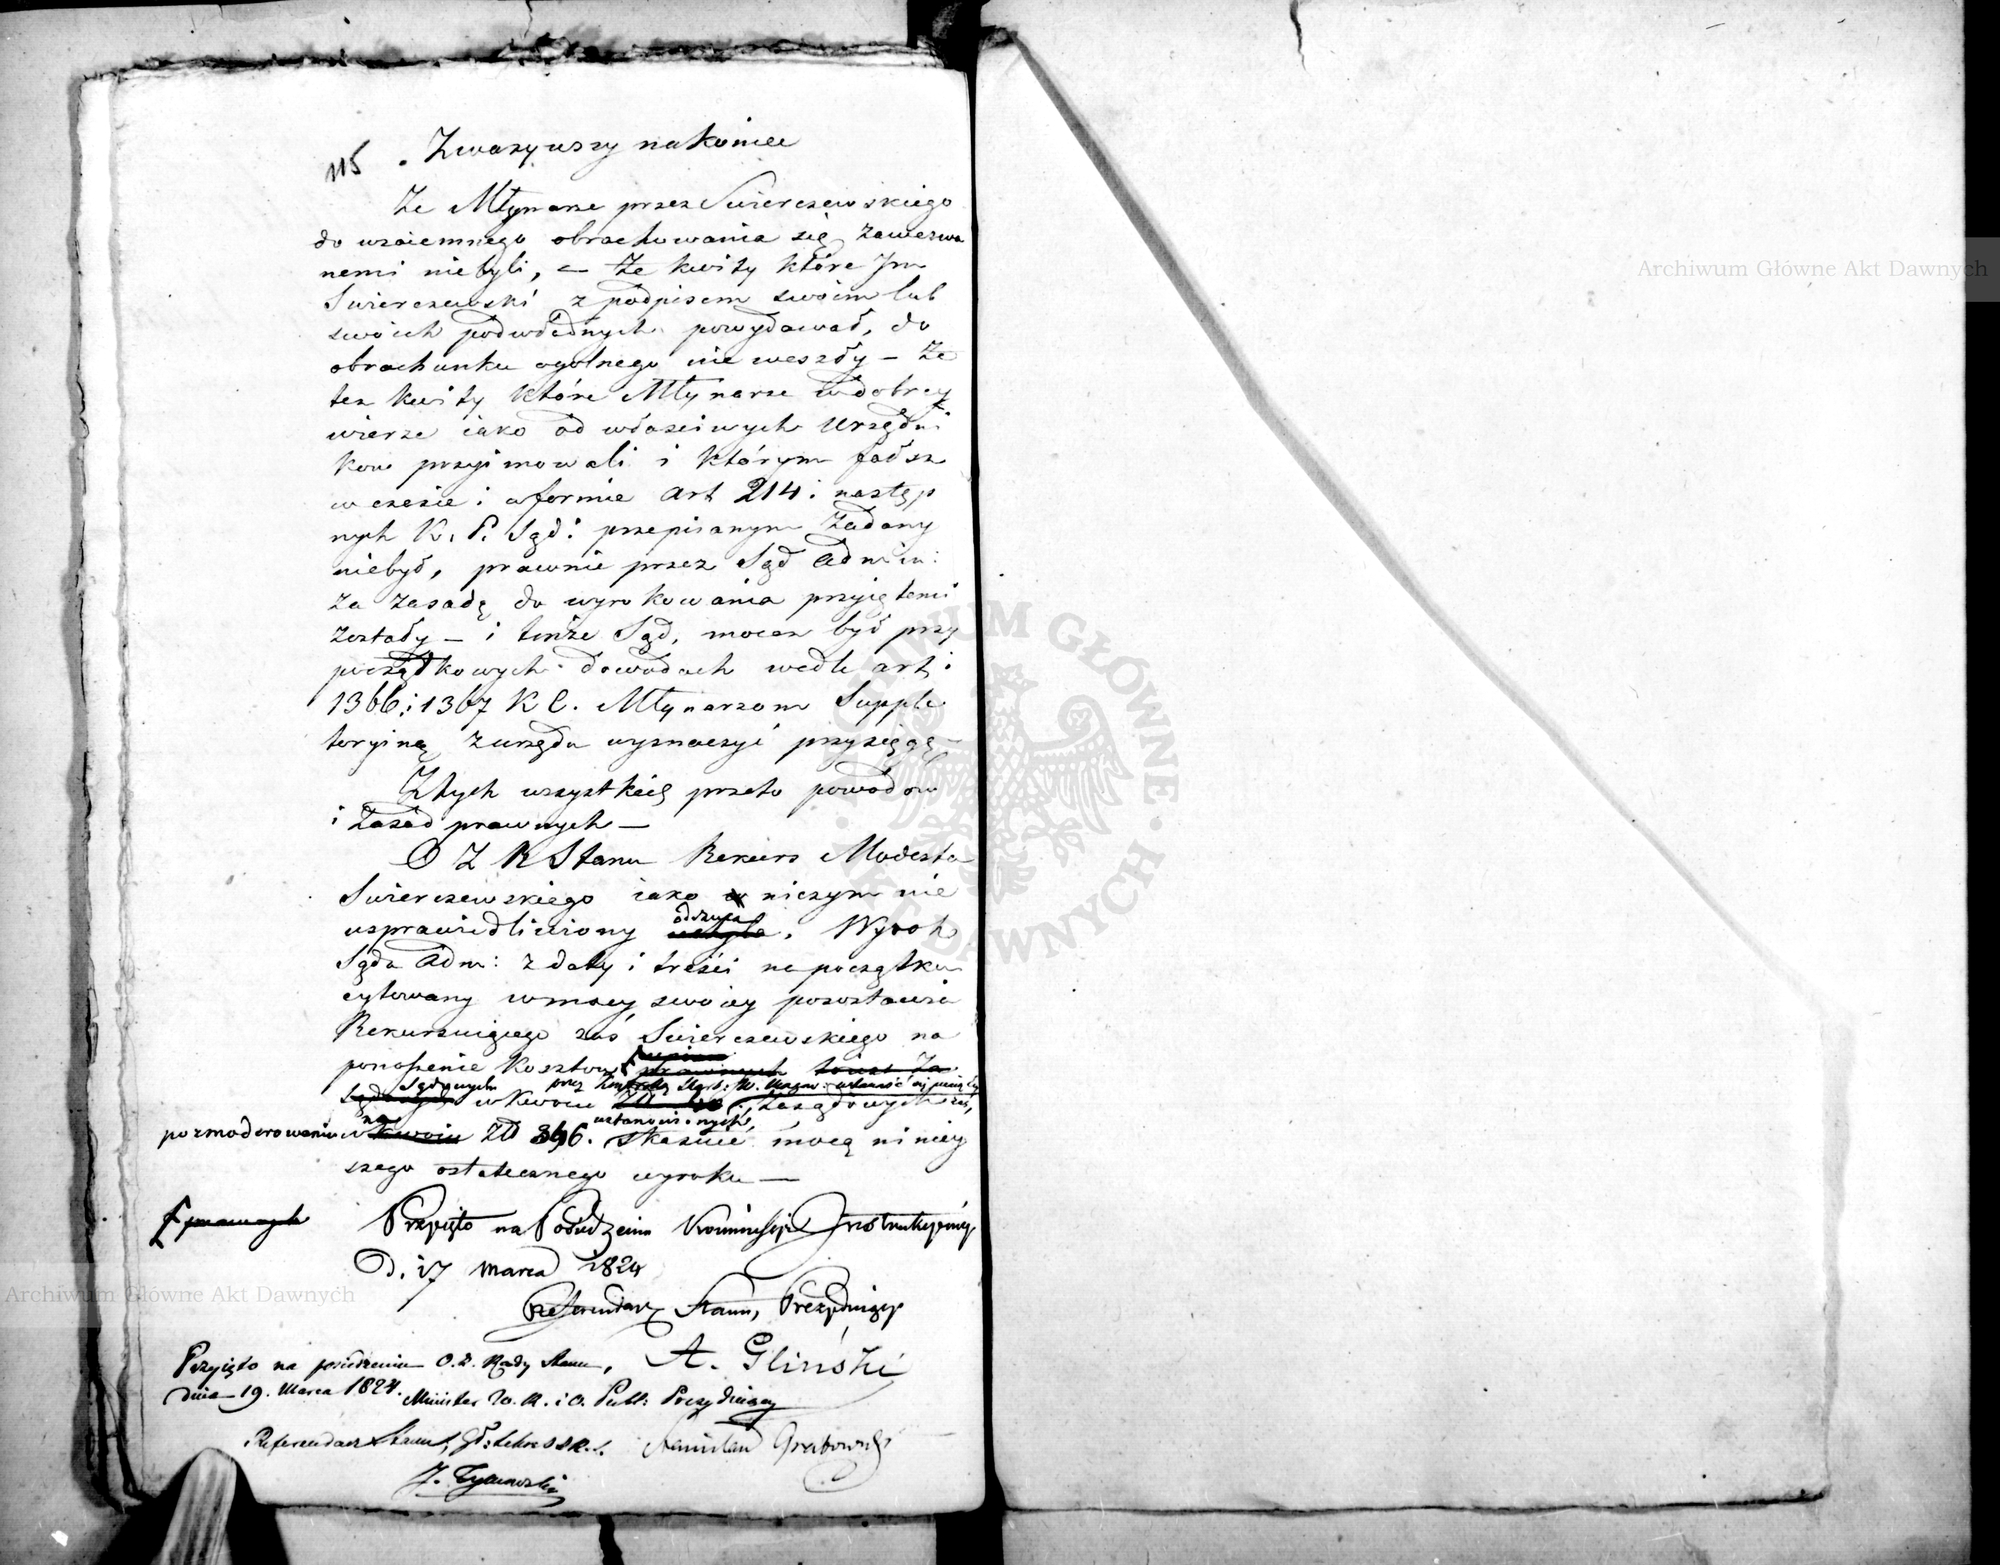 115
Zwazywszy nakoniec
Ze Młynarze przez Swierczewskiego
do wzaiemnego obrachowania się zawezwa
nemi niebyli, – że kwity które Im
Swierczewski z podpisem swóim lub
swóich podwładnych powydawał, do
obrachunku ogolnego nie weszły – że
tez kwity które Młynarze w dobrey
wierze iako od właściwych Urzędni
kow przyimowali i którym fałsz
w czasie i w formie art 214 i następ
nych K. P. Sąd: przepisanym zadany
niebył, prawnie przez Sąd Admin:
za zasadę do wyrokowania przyiętemi
zostały – i tenże Sąd, mocen był przy
początkowych dowodach wedle art:
1366 i 1367 K C. Młynarzom Supple
toryiną z urzędu wyznaczyć przysięgę –
Z tych wszystkich przeto powodów
i zasad prawnych –
O Z R Stanu Rekurs Modesta
Swierczewskiego iako w niczym nie
usprawiedliwiony odrzuca
uchyla. Wyrok
Sądu Adm: z daty i treści na początku
cytowany w mocy swoiey pozostawia
Rekuruiącego zaś Swierczewskiego na
ponoszenie kosztow prawnych
sądowych
sądowych w kwocie zasądzonych zaś,
pozmoderowaniu na ustanowionych,
w kwocie Zł 346. skazuie mocą niniey
szego ostatecznego wyroku –
prawnych
Przyięto na Posiedzeniu Kommissyi Instrukcyiney
D. 17 Marca 1824
Referendarz Stanu, Prezyduiący
A. Gliński
Przyięto na posiedzeniu O. Z. Rady Stanu,
dnia 19. Marca 1824.
Minister W. R. i O. Publ: Prezyduiący
Stanisław Grabowski
Referendarz Stanu,
J. Tymowski
Archiwum Główne Akt Dawnych
Archiwum Główne Akt Dawnych
ARCHIWUM GŁÓWNE · AKT DAWNYCH ·